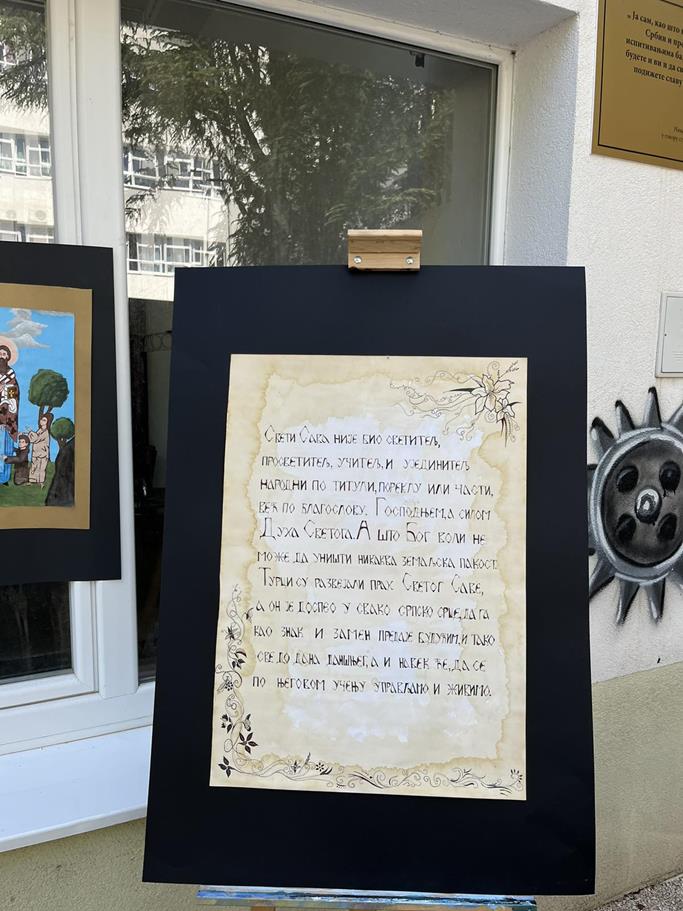 „Ја сам, као што
Србин и
испитивањима
будете и ви и да
подижете славу
у говору
Свети Сава није био светитељ,
просветитељ, учитељ, и ујединитељ
народни по титули, пореклу или части,
већ по благослову Господњем, а силом
Духа Светога. А што Бог воли не
може да уништи никаква земаљска пакост.
Турци су развејали прах Светог Саве,
а он је доспео у свако српско срце, да га
као знак и замен предаје будућим, и тако
све до дана данашњег, а и навек ће, да се
по његовом учењу управљамо и живимо.